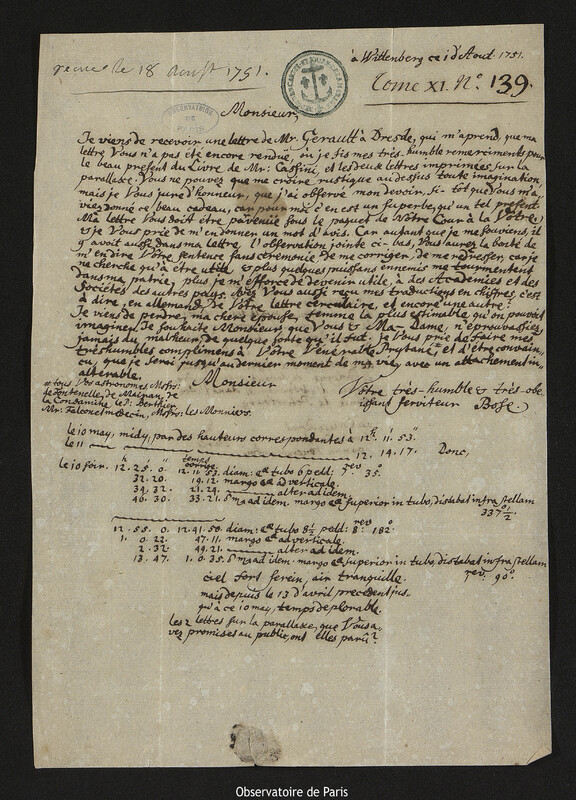 à Wittenberg ce 1 d'Aout 1751.
recue le 18 Aoust 1751.
Tome XI. N.° 139.
OBSERVATOIRE DE PARIS
Monsieur,
Je viens de recevoir une lettre de Mr. Gerault à Dresde, qui m'aprend, que ma
lettre Vous n'a pas été encore rendue, où je fis mes très-humble remerciments pour
le beau présent du Livre de Mr. Cassini, et les deux lettres imprimées, sur la
parallaxe. Vous ne pouvez que me croire rustique au dessus toute imagination,
mais je Vous jure d'honneur, que j'ai observé mon devoir, si-tôt que Vous m'a
viez donné ce beau cadeau, car pour moi c'en est un superbe, qu'un tel present.
Ma lettre Vous doit être parvenüe sous le paquet de Nôtre Cour à la Vôtre,
& je Vous prie de m'en donner un mot d'avis. Car autant que je me souviens, il
y avoit aussi dans ma lettre, l'observation jointe ci-bas, Vous aurez la bonté de
m'en dire Vôtre sentence sans cérémonie de me corriger, de me redresser, car je
ne cherche qu'à être utile & plus quelques puissans ennemis me tourmentent
dans ma patrie, plus je m'efforce de devenir utile, à des Academies et des
Sociétés des autres pays. Avez Vous aussi reçu mes traductions en chifres, c'est
à dire, en allemand, de Vôtre lettre circulaire et encore une autre?
Je viens de perdre ma chere épouse, femme la plus estimable, qu'on pouvoit
imaginer. Je souhaite Monsieur que Vous & Ma-Dame, n'eprouvassiez
jamais du malheur, de quelque sorte qu'il fut. Je Vous prie de faire mes
très humbles complimens à Vôtre Venerable Prytané, et d'être convain-
cu, que je serai jusqu'au dernier moment de ma vie, avec un attachement in-
alterable.
Monsieur
Vôtre très-humble & très-obe
issant serviteur Bose
# tous Vos astronomes Messrs:
de Fontenelle, de Mairan, de
la Condamine, le P. Berthier
Mr. Falconet medecin, Messrs: les Monniers.
Le 10 may, midy, par des hauteurs correspondantes à 12h. 11'. 53''.
le 11 12. 14. 17. Donc,
temps corrigé
le 10 soir. 12. 25. 0. 12. 11. 53. diam: ☾ae tubo 6 ped: 5rev 35.
32. 20. 19. 12. margo ☾ ad verticale.
34. 32. 21. 24. alter ad idem.
46. 30. 33. 21. S ma ad idem. margo ☾ae superior in tubo, distabat infra stellam
337 1/2
12. 55. 0. 12. 41. 50. diam: ☾ae tubo 8 1/2 ped: 8rev 182°
1. 0. 22. 47. 11. margo ☾ ad verticale.
2. 32. 49. 21. alter ad idem.
13. 47. 1. 0. 35. S ma ad idem. margo ☾ae superior in tubo, distabat infra stellam
rev. 90°.
ciel fort serein, air tranquille.
mais depuis le 13 d'avril precedent jus-
qu'à ce 10 may, temps deplorable.
les 2 lettres sur la parallaxe, que Vous a-
vez promises au public, ont elles parû?
Observatoire de Paris